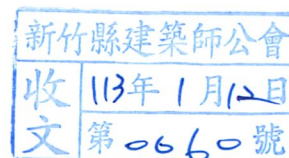 新竹縣建築師公會
收文
113年1月12日
第0060號